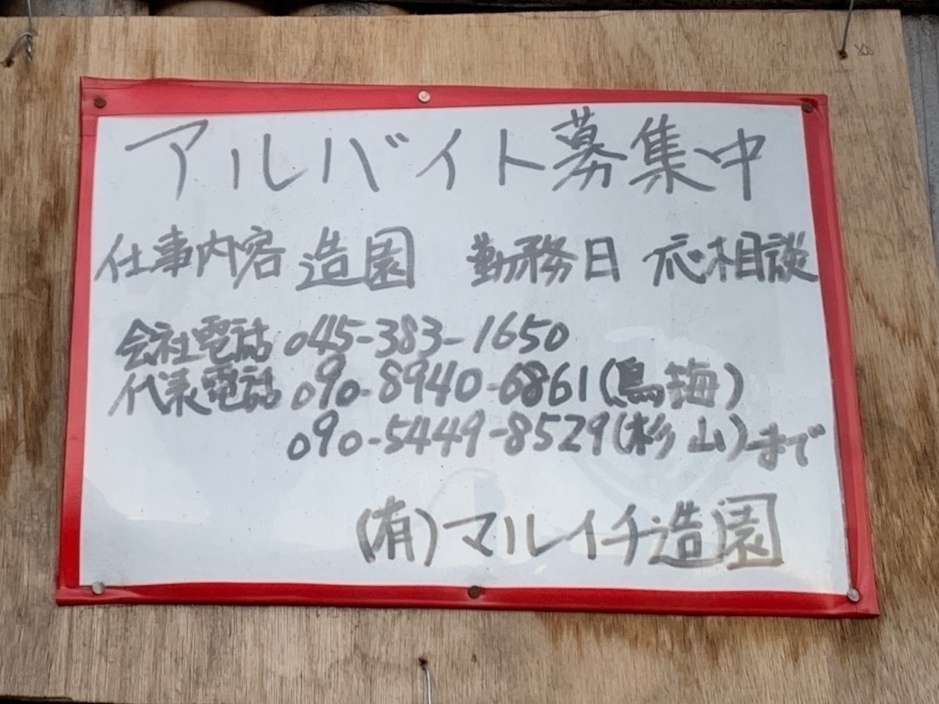 アルバイト募集中
仕事内容 造園 勤務日 応相談
会社電話 045-383-1650
代表電話 090-8940-6861(鳥海)
090-5449-8529(杉山)まで
(有)マルイチ造園